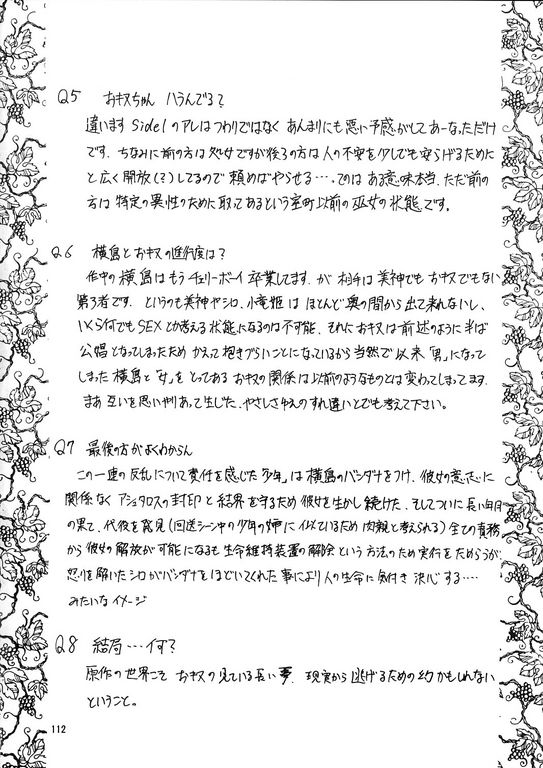 Q5 おキヌちゃん ハらんでる?
違います Side1のアレはつわりではなく あんまりにも悪い予感がしてあーなっただけ
です。ちなみに前の方は処女ですが後ろの方は人の不安を少しでも安らげるためにと
と広く開放(?)してるので 頼めばやらせる…。のは ある意味本当、ただ前の
方は特定の異性のために取ってあるという室町以前の巫女の状態です。
Q6 横島とおキヌの進行度は?
作中の横島はもうチェリーボーイ卒業してます。が 相手は美神でもおキヌでもない
第3者です。というのも美神やシロ、小竜姫はほとんど奥の間から出て来れないし、
いくら何でもSEXとか考える状態になるのは不可能、それにおキヌは前述のように半ば
公娼となってしまったため かえって抱きづらいことになっているから当然で以来「男」になって
しまった横島と「女」をとってある おキヌの関係は以前のようなものとは変わってしまってます。
まあ互いを思いやりあって生じた、やさしさゆえのすれ違いとでも考えて下さい。
Q7 最後の方がよくわからん
この一連の反乱について責任を感じた「少年」は横島のバンダナをつけ、彼女の意志に
関係なくアシュタロスの封印と結界を守るため彼女を生かし続けた、そしてついに長い年月
の果て、代役を発見(回送シーン中の少年の姉に似ているため肉親と考えられる)全ての責務
から彼女の解放が可能になるも生命維持装置の解除という方法のため実行をためらうが、
怒りを解いたシロがバンダナをほどいてくれた事により人の生命に気付き決心する….
みたいなイメージ
Q8 結局…何?
原作の世界こそ おキヌの見ている長い夢、現実から逃げるための幻かもしれない
ということ。
112